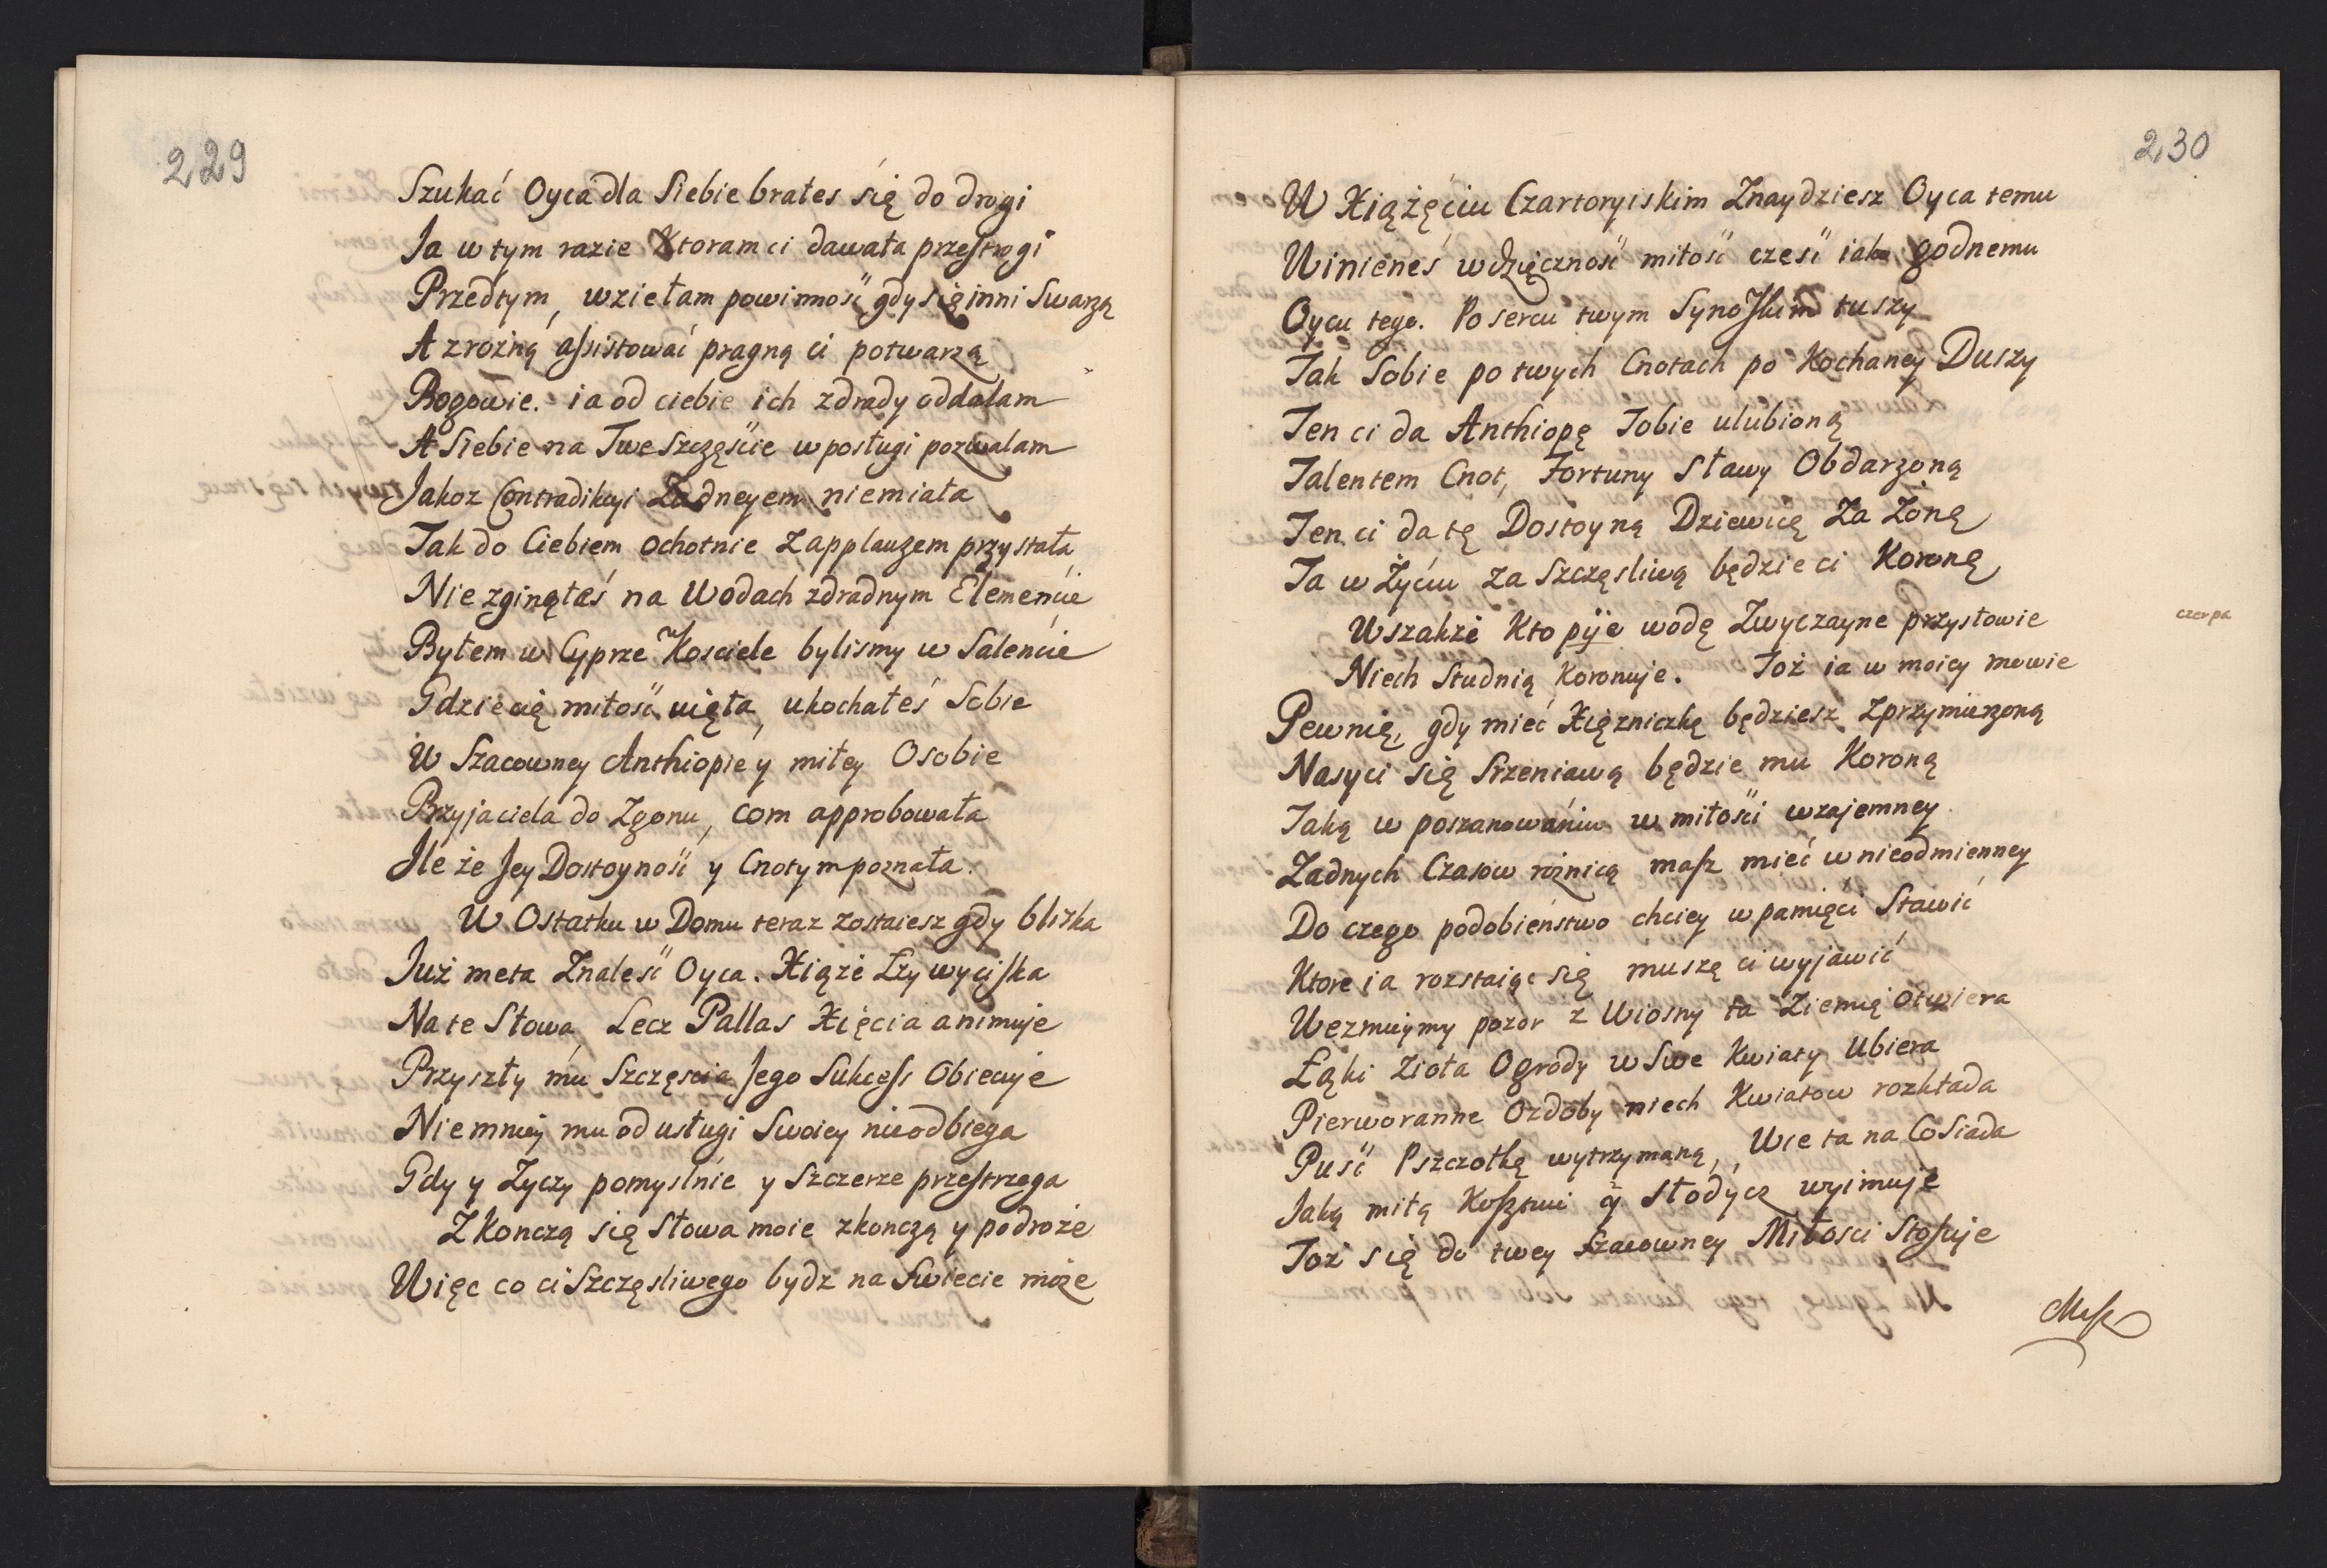 229
Szukać Oyca dla Siebie brałes się do drogi
Ja w tym razie Ktoram ci dawała przeſtrogi
Przedtym, wziełam powinność gdy się inni Swarzą
A zrożną aſsistować pragną ci potwarzą
Bogowie. ia od ciebie ich zdrady oddalam
A Siebie na Twe Szczęście w posługi pozwalam
Jakoz Contradikcyi Żadneyem niemiała
Tak do Ciebiem ochotnie z applauzem przystała
Nie zginąłeś na Wodach zdradnym Elemencie
Byłem w Cyprze Kosciele bylismy w Salencie
Gdzie cię miłość ujęła, ukochałeś Sobie
W Szacowney Anthiopie y miłey Osobie
Przyjaciela do Zgonu, com approbowała
Ile że Jey Dostoyność y Cnotym poznała.
W Ostatku w Domu teraz zostaiesz gdy blizka
Już meta Znaleść Oyca. Xiąże Łzy wyciſka
Na te Słowa, Lecz Pallas Xięcia animuje
Przyszły mu Szczęscia Jego Sukceſs Obiecuje
Niemniey mu od usługi Swoiey nieodbiega
Gdy y Życzy pomyslnie y Szczerze przeſtrzega
Zkonczą się Słowa moie zkonczą y podroże
Więc co ci Szczęsliwego bydz na Swiecie może
230
W Xiążęciu Czartoryiskim Znaydziesz Oyca temu
Winieneś wdzięczność miłość cześć iako godnemu
Oycu tego. Po sercu twym Synoſkim tuszy
Tak Sobie po twych Cnotach po Kochaney Duszy
Ten ci da Anthiopę Tobie ulubioną
Talentem Cnot, Fortuny Sławy Obdarzoną
Ten ci da tę Dostoyną Dziewicę Za Żonę
Ta w Życiu za Szczęsliwą będzie ci Koronę
Wszakże Kto pije wodę Zwyczayne przysłowie
czerpa
Niech Studnią Koronuje. Toż ia w moiey mowie
Pewnię, gdy mieć Xiężniczkę będziesz Zprzymierzoną
Nasyci się Srzeniawą będzie mu Koroną
Taką w poszanowaniu w miłości wzajemney
Żadnych Czasow rożnicą maſz mieć w nieodmienney
Do czego podobieństwo chciey w pamięci Stawić
Ktore ia rozstaiąc się muszę ci wyjawić
Wezmuymy pozor z Wiosny ta Ziemię otwiera
Łąki Zioła Ogrody w Swe Kwiaty Ubiera
Pierworanne Ozdoby niech Kwiatow rozkłada
Puść Pszczołkę wytrzymaną, Wie ta na Co Siada
Jaką miłą Koſztuie y słodycz wyimuje
Toż się do twey Szacowney Miłosci Stoſuje